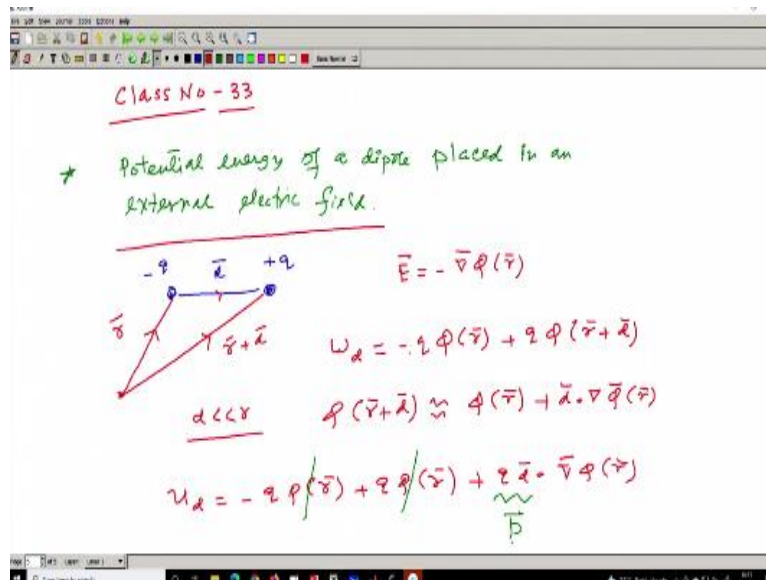 Class No - 33
* Potential energy of a dipole placed in an
external electric field.
-q d̄ +q
Ē = - ∇̄ φ(r̄)
r̄ r̄+d̄
W_d = - q φ(r̄) + q φ(r̄+d̄)
d<<r φ(r̄+d̄) ≈ φ(r̄) + d̄.∇ φ̄(r̄)
U_d = - q φ(r̄) + q φ(r̄) + q d̄. ∇̄ φ(r̄)
p̄